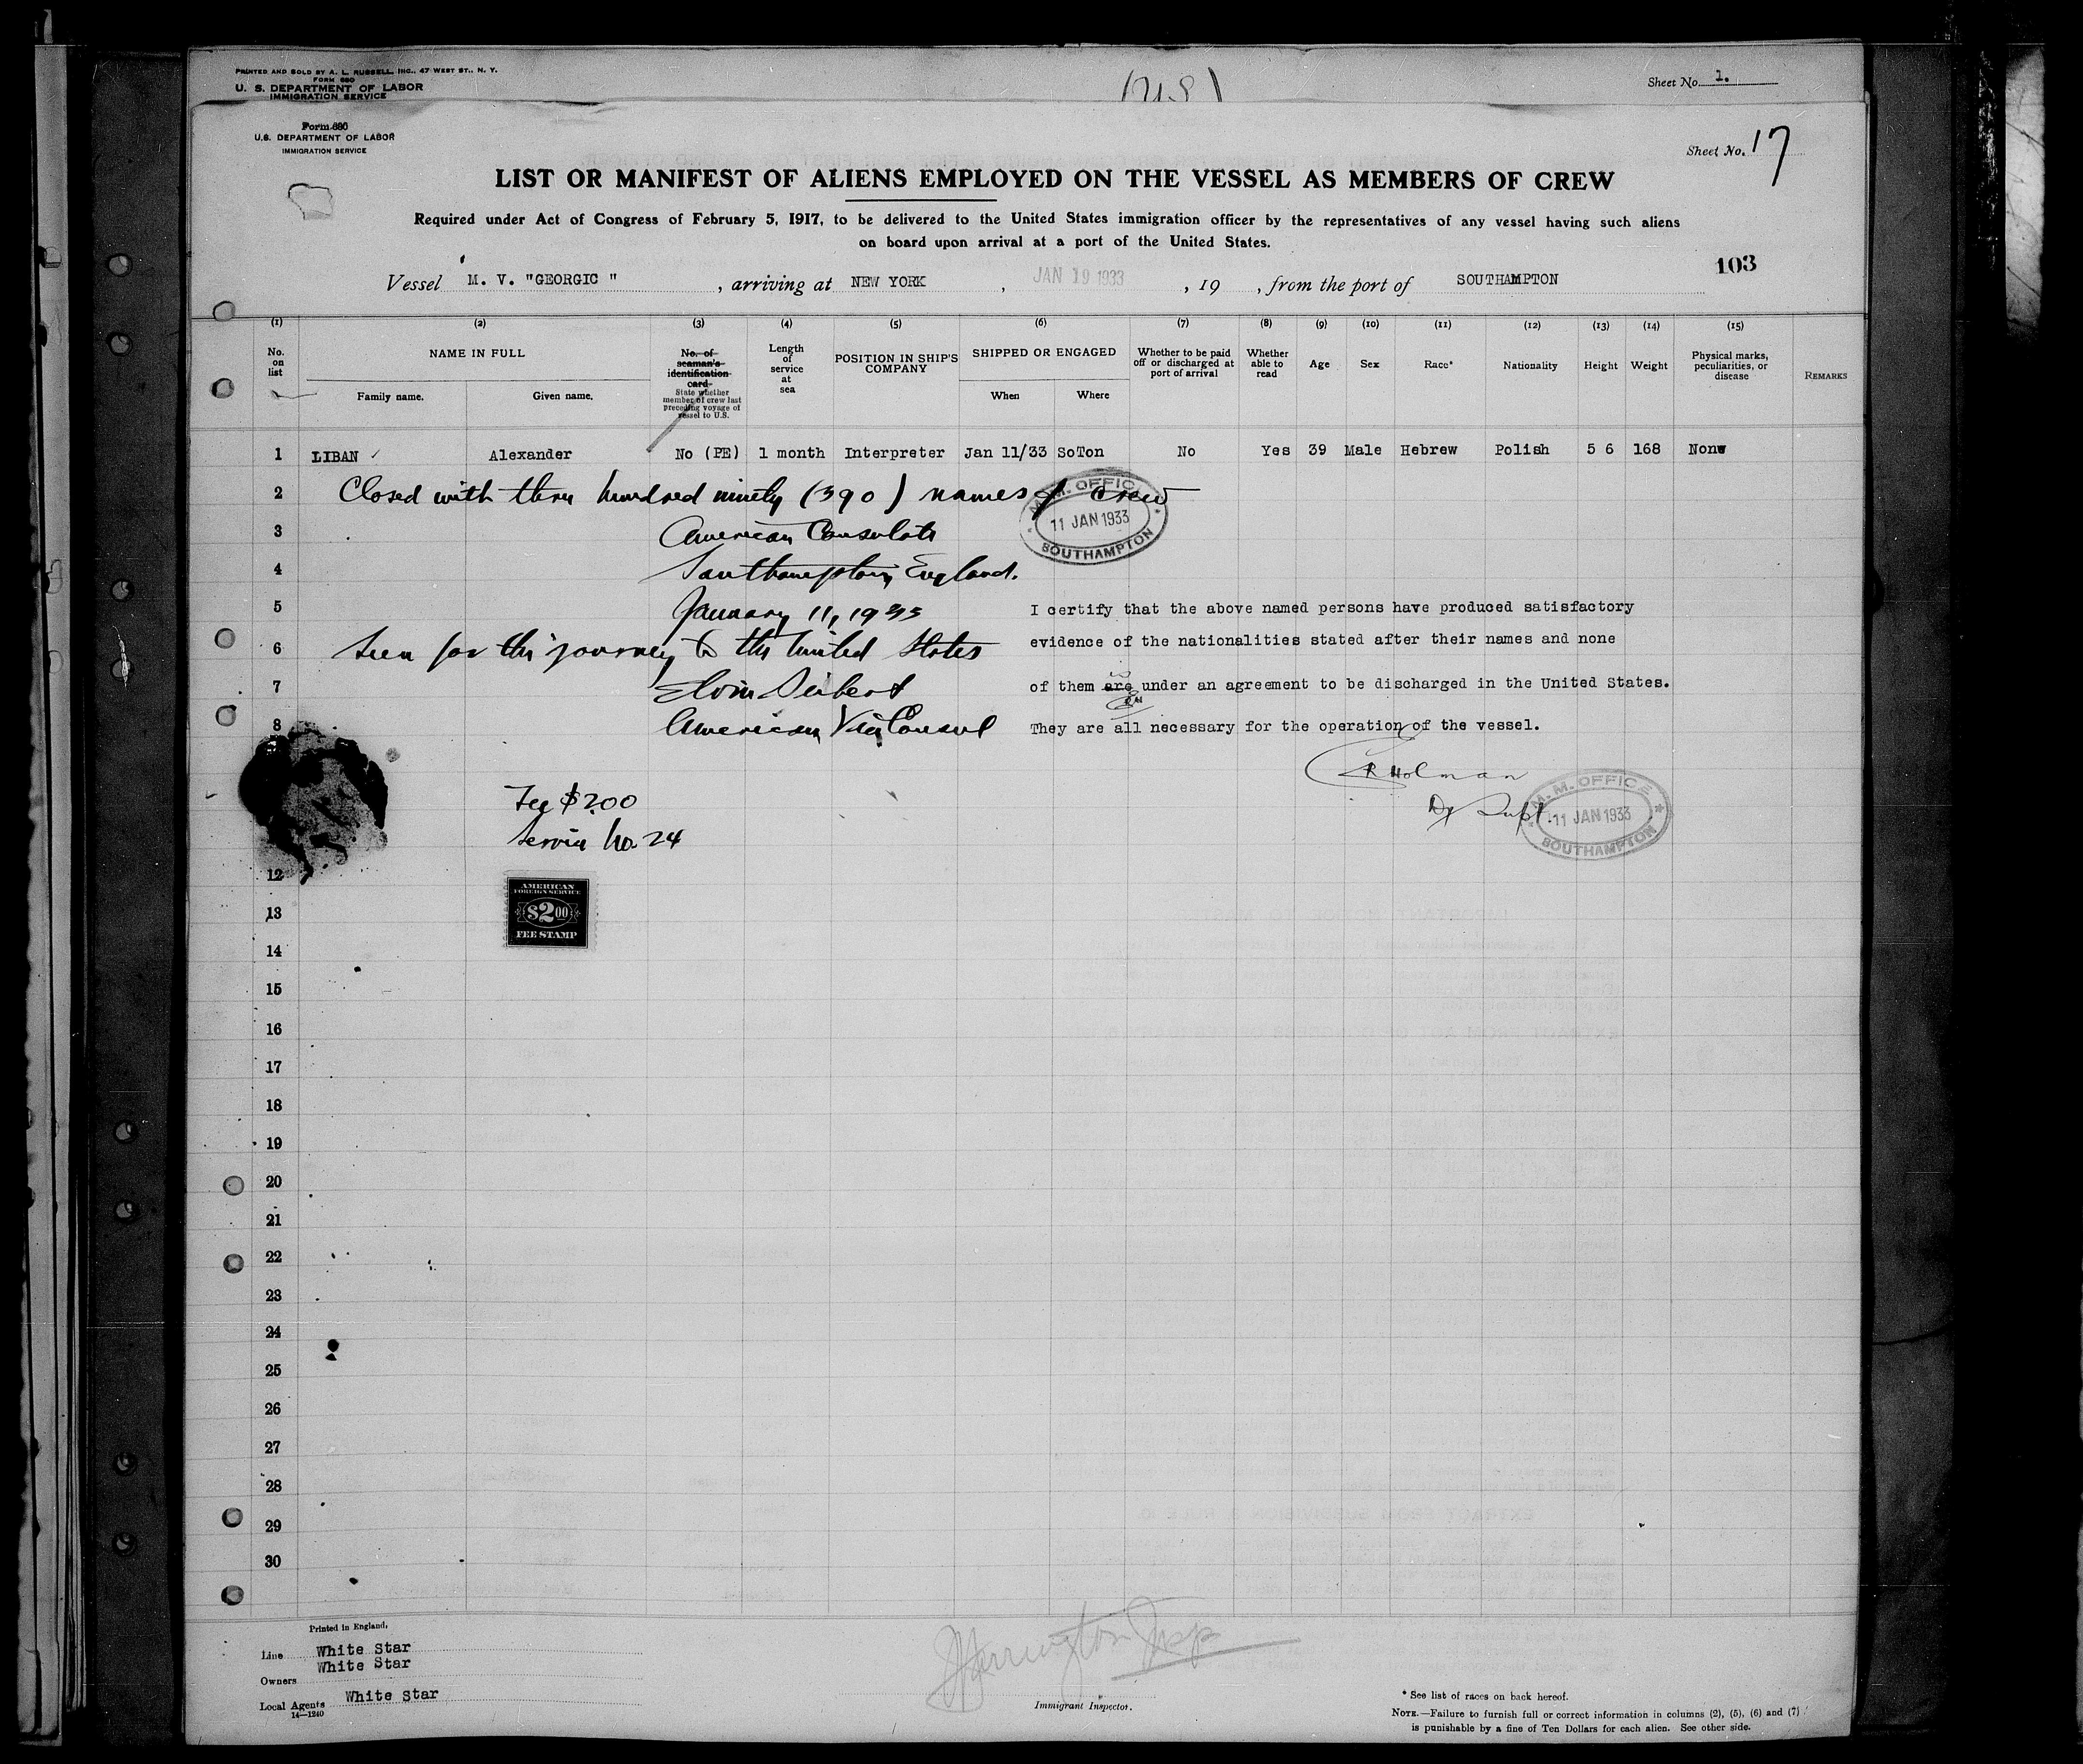 PRINTED AND SOLD BY A. L. RUSSELL, INC., 47 WEST ST., N. Y.
FORM 680
U. S. DEPARTMENT OF LABOR
IMMIGRATION SERVICE
Sheet No. 1.
Form 680
U.S. DEPARTMENT OF LABOR
IMMIGRATION SERVICE
Sheet No. 17
LIST OR MANIFEST OF ALIENS EMPLOYED ON THE VESSEL AS MEMBERS OF CREW
Required under Act of Congress of February 5, 1917, to be delivered to the United States immigration officer by the representatives of any vessel having such aliens
on board upon arrival at a port of the United States.
103
Vessel M. V. "GEORGIC", arriving at NEW YORK, JAN 19 1933, 19 , from the port of SOUTHAMPTON
(1) (2) (3) (4) (5) (6) (7) (8) (9) (10) (11) (12) (13) (14) (15)
No. on list
NAME IN FULL
Family name. Given name.
No. of seaman's identification card
State whether member of crew last preceding voyage of vessel to U.S.
Length of service at sea
POSITION IN SHIP'S COMPANY
SHIPPED OR ENGAGED
When Where
Whether to be paid off or discharged at port of arrival
Whether able to read
Age
Sex
Race*
Nationality
Height
Weight
Physical marks, peculiarities, or disease
REMARKS
1 LIBAN Alexander No (PE) 1 month Interpreter Jan 11/33 SoTon No Yes 39 Male Hebrew Polish 5 6 168 None
2 Closed with three hundred ninety (390) names of crew
M.M. OFFICE
11 JAN 1933
SOUTHAMPTON
3 American Consulate
4 Southampton, England.
5 January 11, 1933
I certify that the above named persons have produced satisfactory
6 Seen for the journey to the United States
evidence of the nationalities stated after their names and none
7
of them are under an agreement to be discharged in the United States.
8 American Vice Consul
They are all necessary for the operation of the vessel.
Holman
Dy Supt.
M.M. OFFICE
11 JAN 1933
SOUTHAMPTON
Fee $2.00
Service No. 24
12
AMERICAN
FOREIGN SERVICE
$2.00
FEE STAMP
13
14
15
16
17
18
19
20
21
22
23
24
25
26
27
28
29
30
Printed in England.
Line White Star
Owners White Star
Local Agents White Star
14—1240
Immigrant Inspector.
* See list of races on back hereof.
NOTE.—Failure to furnish full or correct information in columns (2), (5), (6) and (7)
is punishable by a fine of Ten Dollars for each alien. See other side.